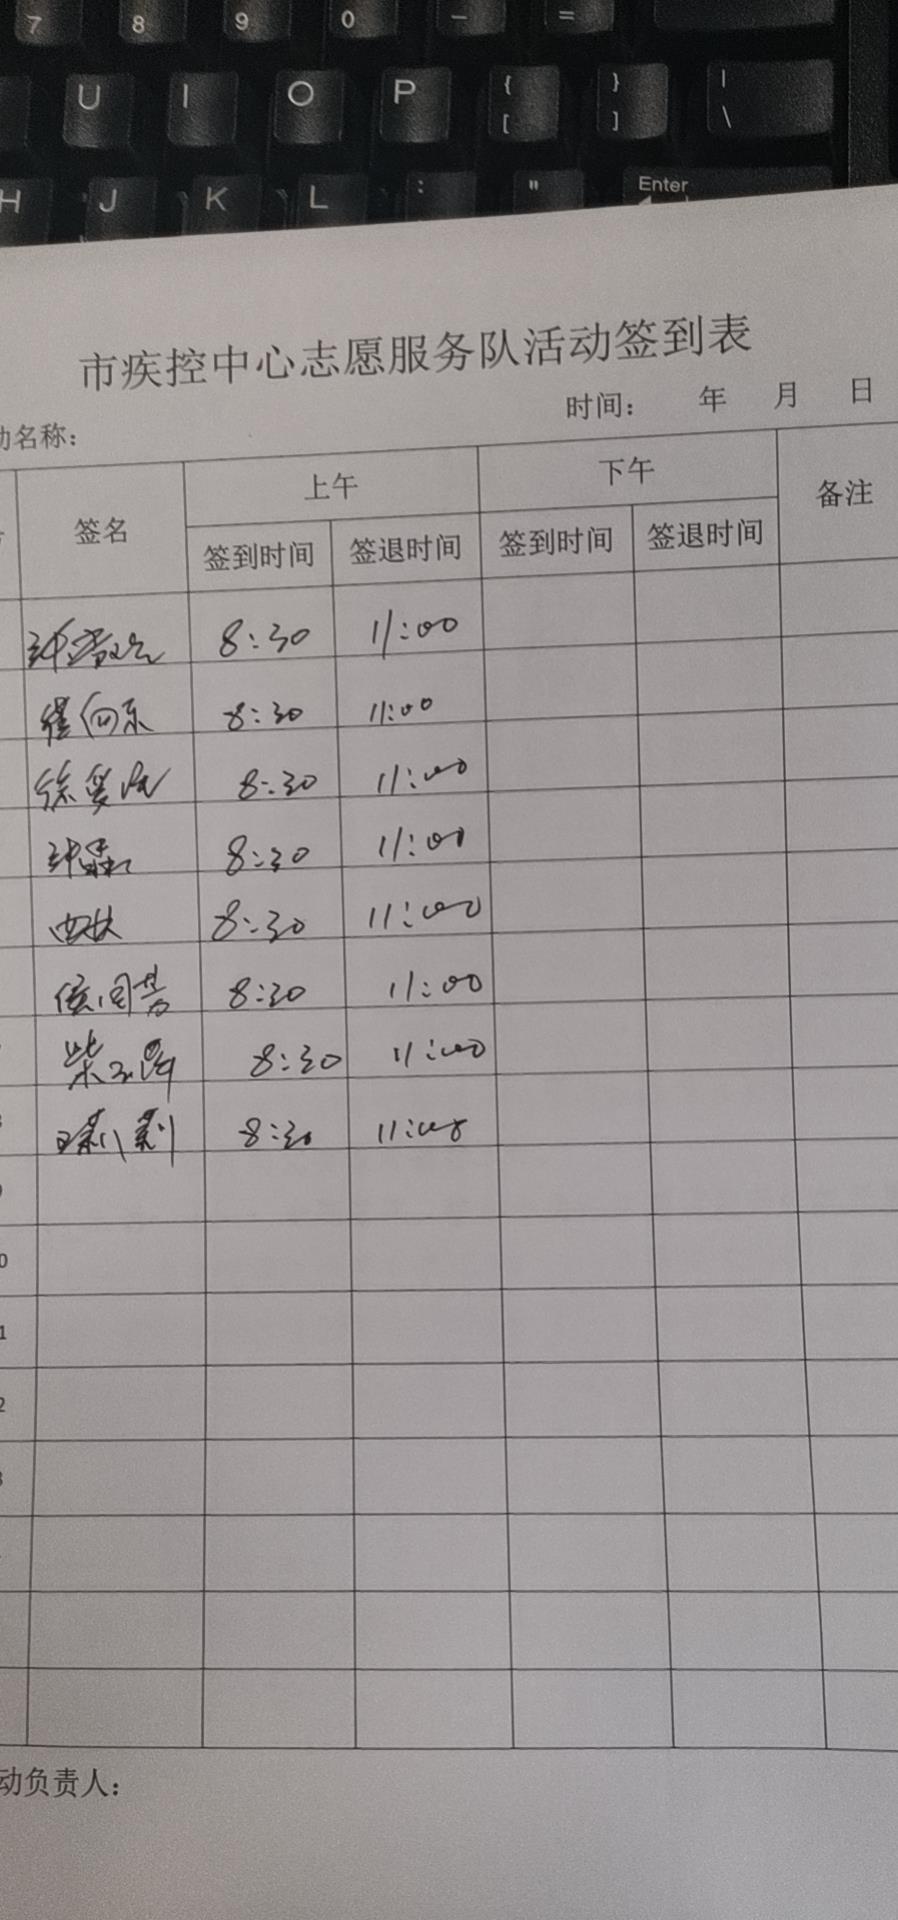 7 8 9 0 - =
U I O P { [ } ] | \
H J K L : " Enter
市疾控中心志愿服务队活动签到表
时间： 年 月 日
动名称：
签名 上午 下午 备注
签到时间 签退时间 签到时间 签退时间
8:30 11:00
崔向东 8:30 11:00
徐 8:30 11:00
8:30 11:00
8:30 11:00
8:30 11:00
柴 8:30 11:00
8:30 11:00
9
0
1
2
3
动负责人：